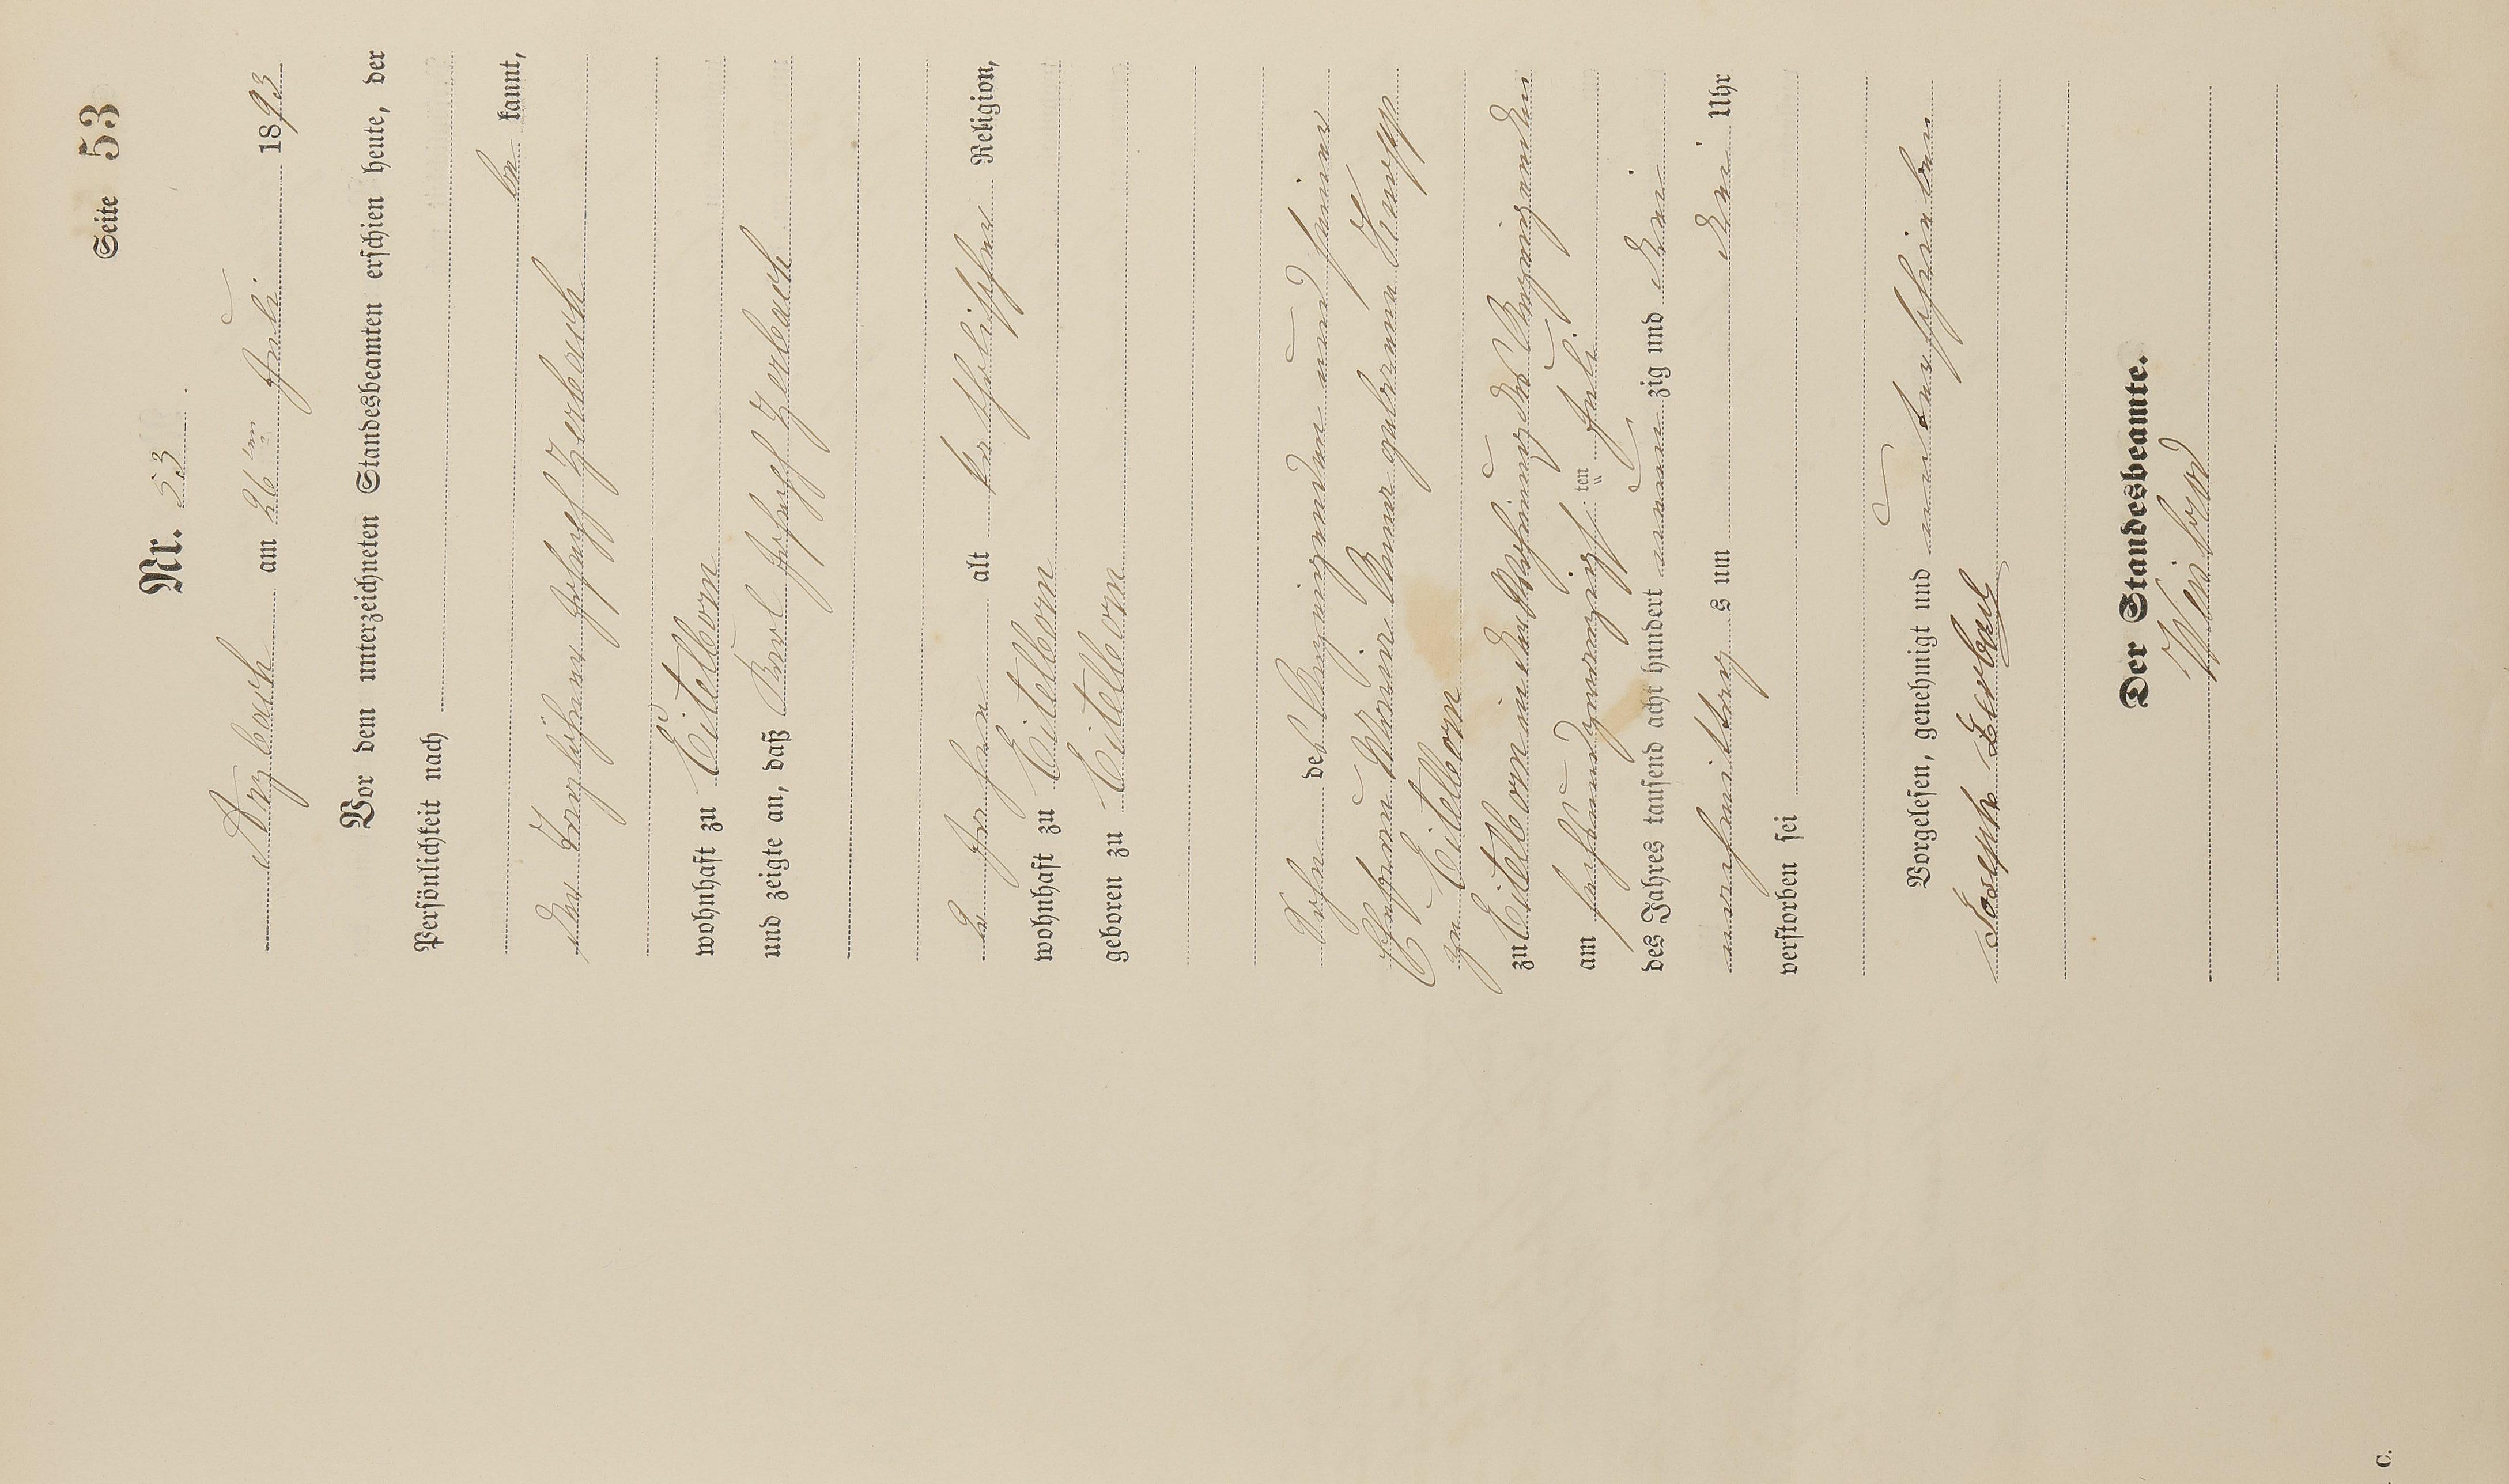 Seite 53
Nr. 53.
Arzbach am 26ten Juli 1893
Vor dem unterzeichneten Standesbeamten erschien heute, der
Persönlichkeit nach
be kannt,
der Taglöhner Joseph Zerbach
wohnhaft zu Eitelborn
und zeigte an, daß Karl Joseph Zerbach
2 Jahre alt katholischer Religion,
wohnhaft zu Eitelborn
geboren zu Eitelborn
Sohn des Anzeigenden und seiner
Ehefrau Maria Anna geborene Knopp
zu Eitelborn
zu Eitelborn in der Wohnung des Anzeigenden
am sechsundzwanzigsten Juli
des Jahres tausend acht hundert neunzig und drei
nachmittags um drei Uhr
verstorben sei
Vorgelesen, genehmigt und unterschrieben
Joseph Zerbach
Der Standesbeamte.
C.